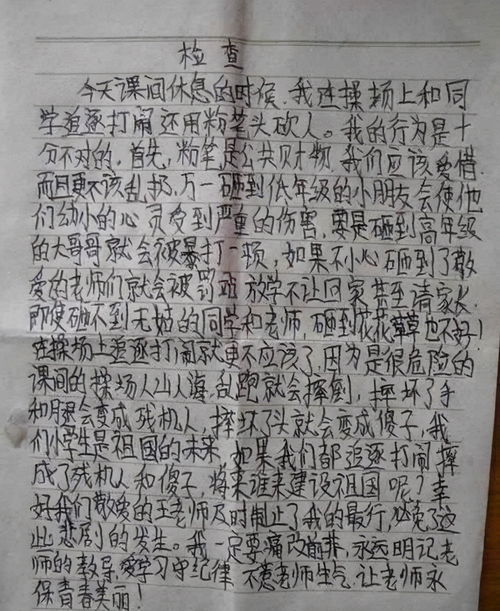 检查
今天课间休息的时候,我在操场上和同
学追逐打闹还用粉笔头砍人。我的行为是十
分不对的,首先,粉笔是公共财物,我们应该爱惜
而且更不该乱扔,万一砸到低年级的小朋友会使他
们幼小的心灵受到严重的伤害,要是砸到高年级
的大哥哥就会被暴打一顿,如果不小心砸到了敬
爱的老师们就会被罚站放学不让回家甚至请家长
即使砸不到无辜的同学和老师,砸到花花草草也不好!
在操场上追逐打闹就更不应该了,因为是很危险的
课间的操场人山人海,乱跑就会摔倒,摔坏了手
和腿会变成残机人,摔坏了头就会变成傻子,我
们小学生是祖国的未来,如果我们都追逐打闹摔
成了残机人和傻子,将来谁来建设祖国呢?幸
好我们敬爱的王老师及时制止了我的最行,必免了这
些悲剧的发生。我一定要痛改前非,永远明记老
师的教导,爱学习守纪律不惹老师生气,让老师永
保青春美丽!